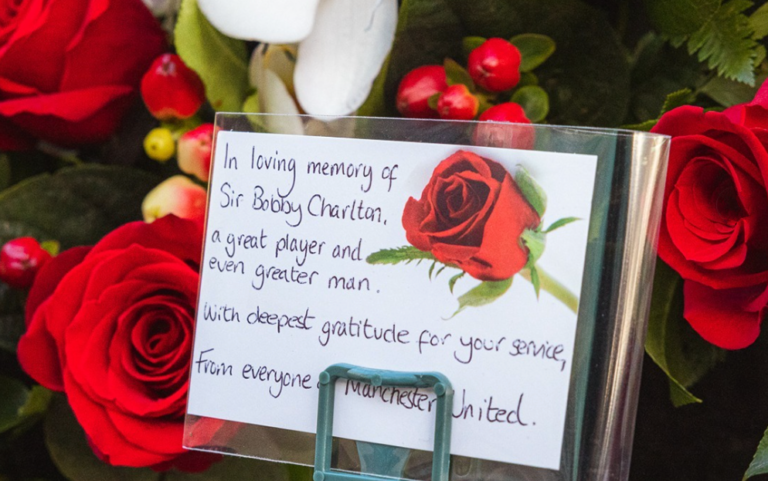 In loving memory of
Sir Bobby Charlton,
a great player and
even greater man.
With deepest gratitude for your service,
From everyone Manchester United.